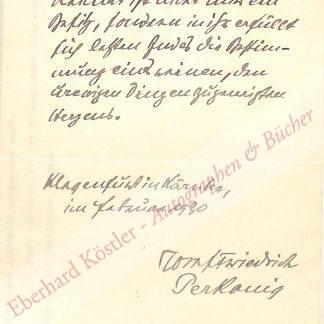 Besitz, sondern in ihr erfüllt
sich letzten Endes die Bestim-
mung eines reinen, den
ewigen Dingen zugeneigten
Herzens.
Klagenfurt in Kärnten,
im Februar 1930
Josef Friedrich
Perkonig
Eberhard Köstler - Autographen & Bücher